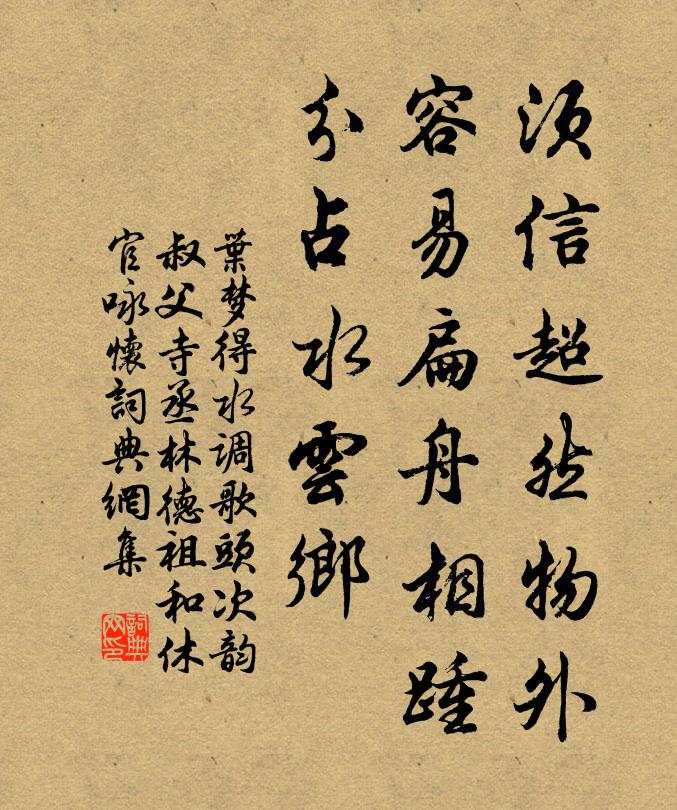 须信超然物外
容易扁舟相踵
分占水雲鄉
葉梦得水调歌頭次韵
叔父寺丞林德祖和休
官咏懷詞典網集
詞典
网印